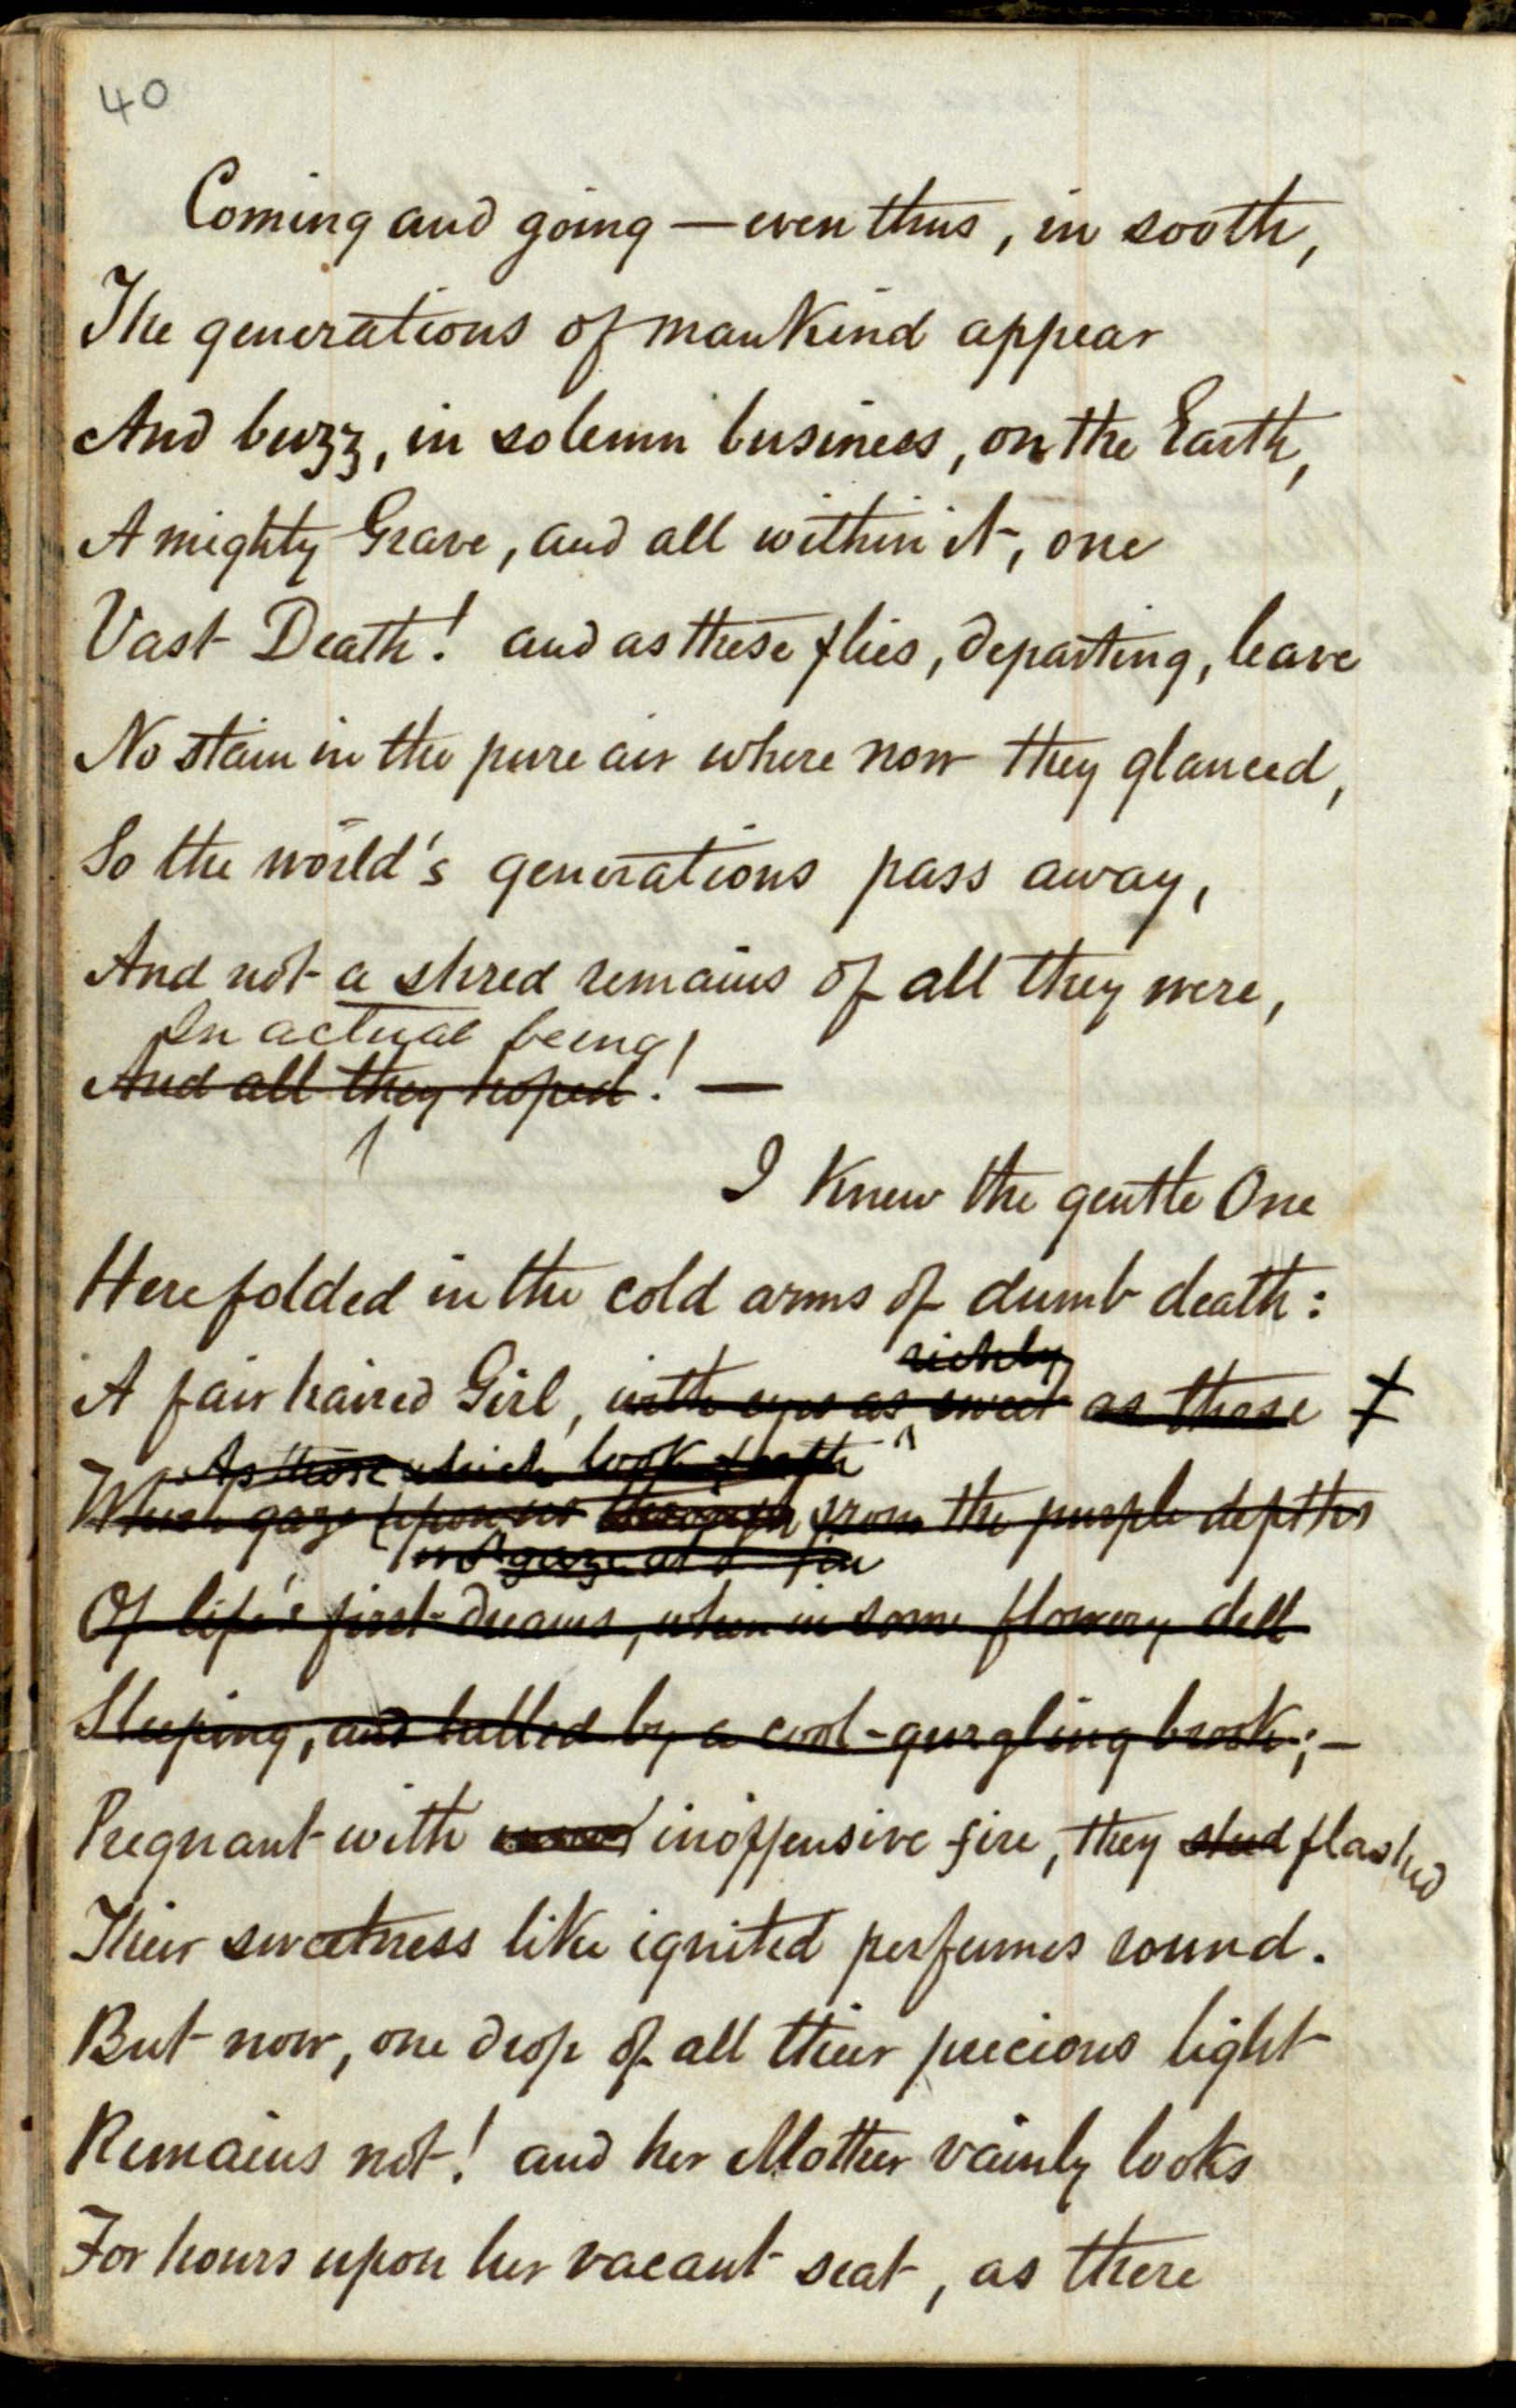 40
Coming and going — even thus, in sooth,
The generations of mankind appear
And buzz, in solemn business, on the Earth,
A mighty Grave, and all within it, one
Vast Death! and as these flies, departing, leave
No stain in the pure air where now they glanced,
So the world's generations pass away,
And not a shred remains of all they were,
In actual being!
And all they hoped! —
I knew the gentle One
Here folded in the cold arms of dumb death:
richly
A fair haired Girl, with eyes as sweet as those
As those which look forth
Which gaze upon us through from the purple depths
gaze
Of life's first dreams, when in some flowery dell
Sleeping, and lulled by a cool-gurgling brook; —
Pregnant with inoffensive fire, they shed flashed
Their sweetness like ignited perfumes round.
But now, one drop of all their precious light
Remains not! and her Mother vainly looks
For hours upon her vacant seat, as there